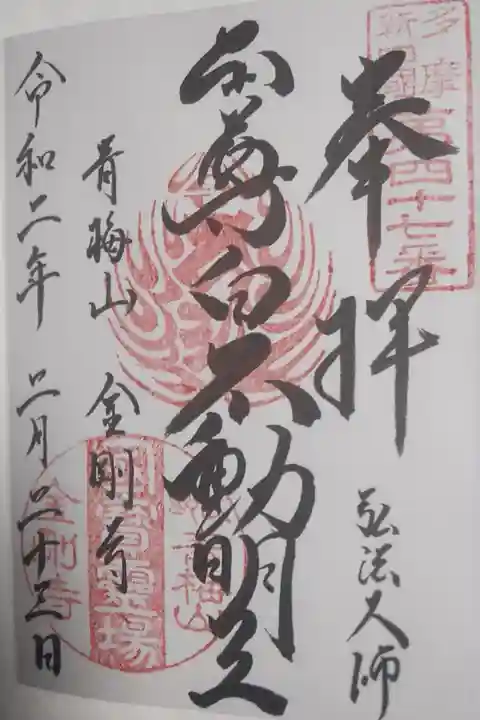 多摩
新四國
第四十七番
奉拝
弘法大師
本尊白不動明王
青梅山 金剛寺
令和二年 二月二十三日
青梅山
靈場
金剛寺